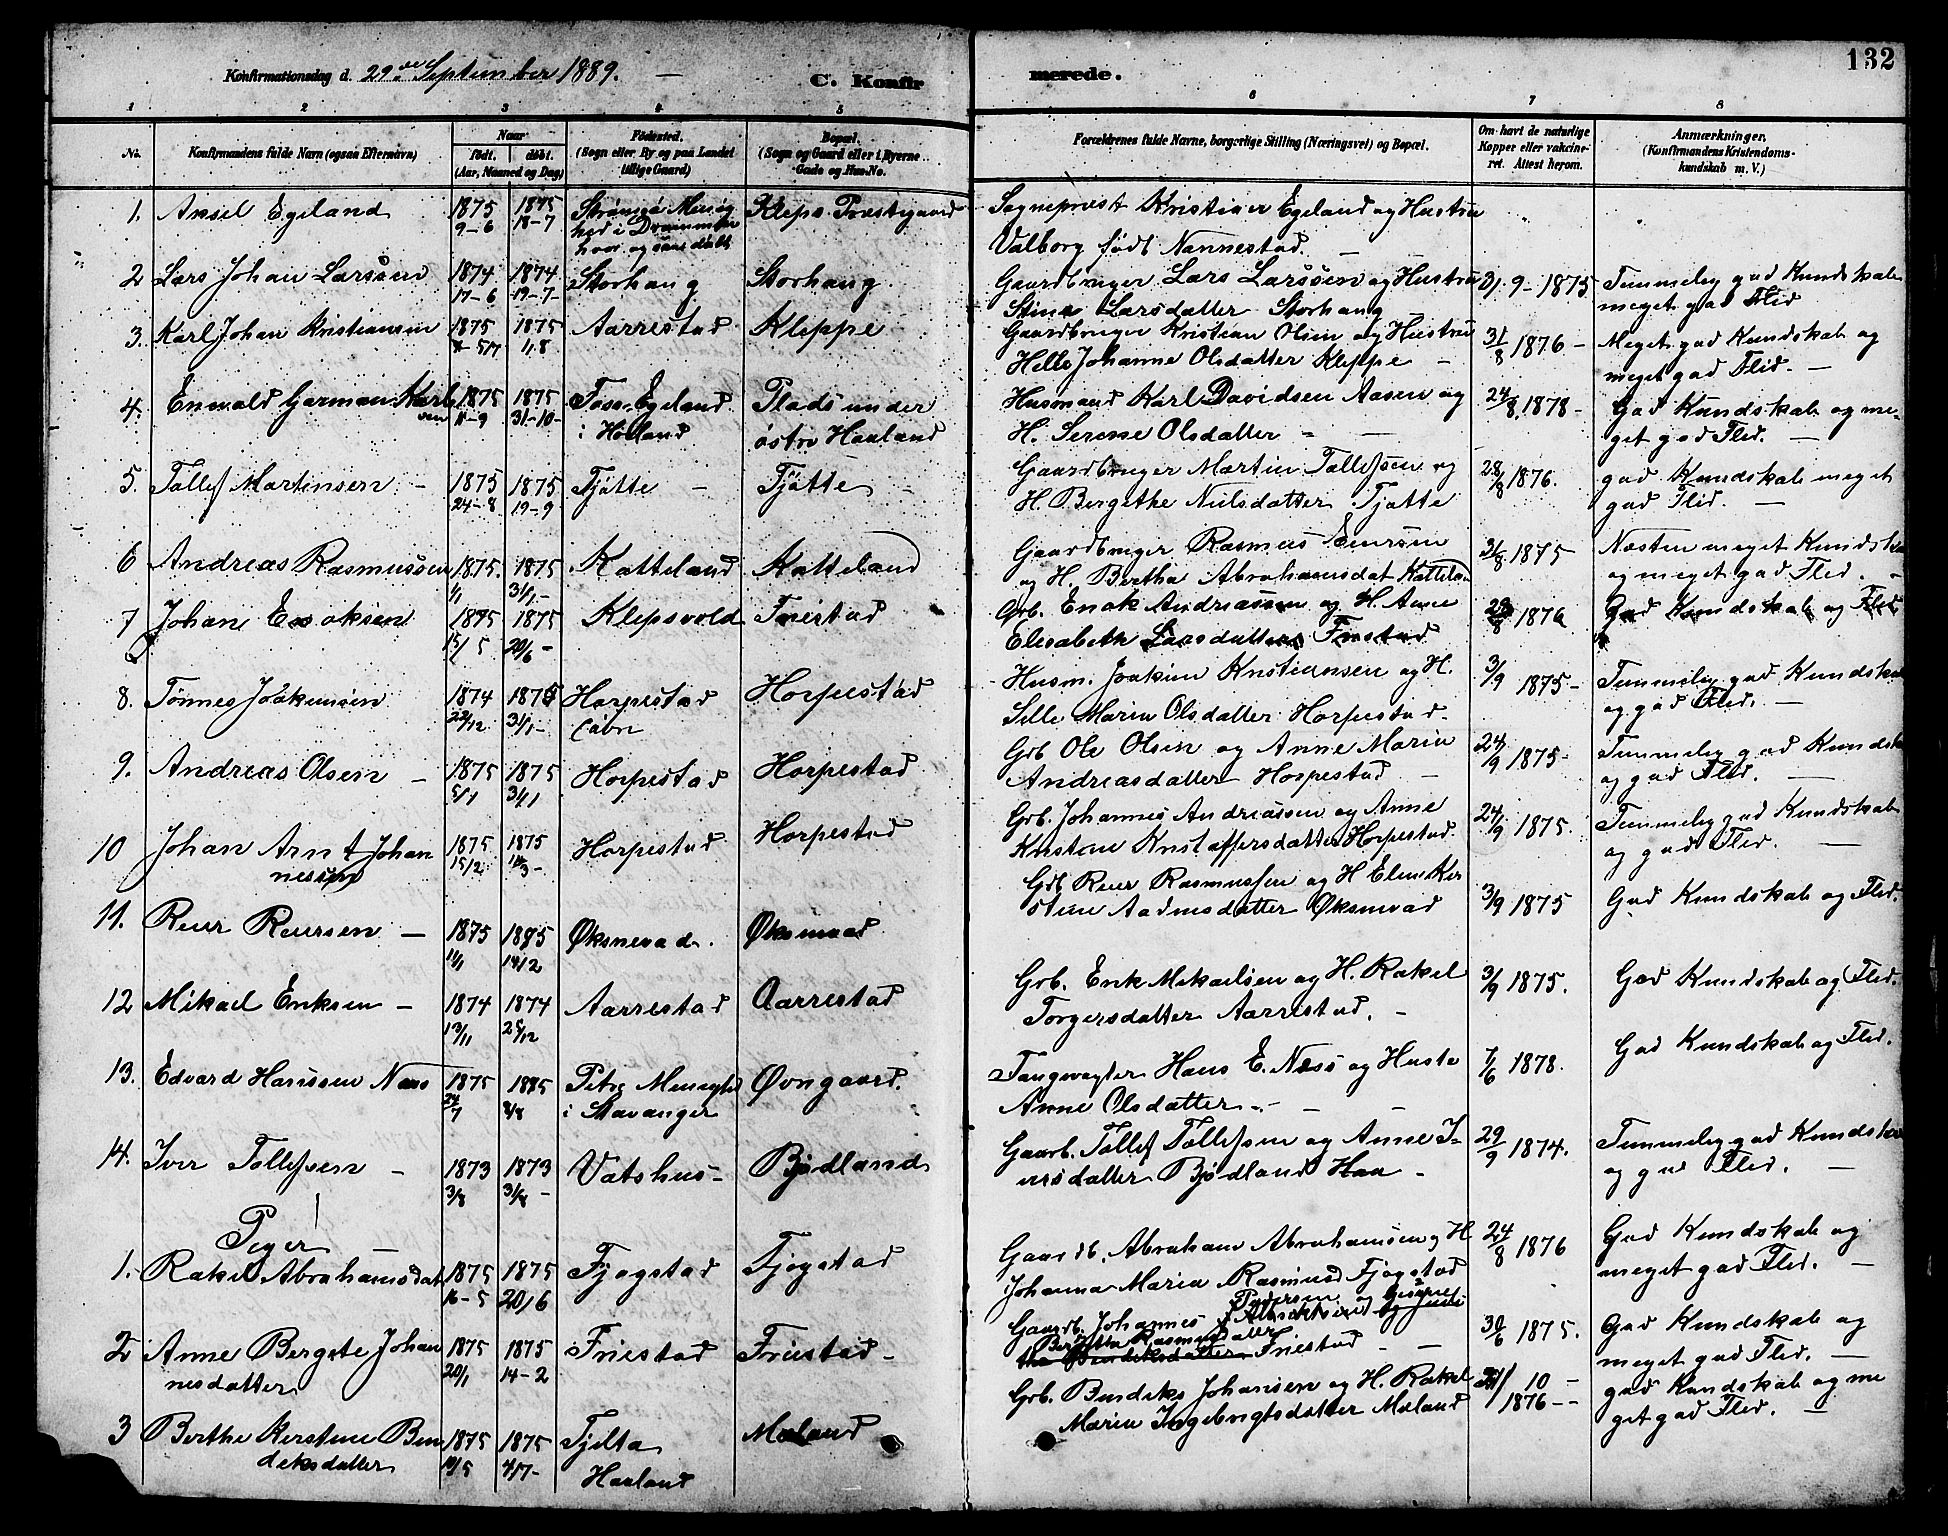 132
Konfirmationsdag d. 29de September 1889. —
C. Konfirmerede.
1 2 3 4 5 6 7 8
No. Konfirmandens fulde Navn (ogsaa Efternavn) Naar født, døbt. (Aar, Maaned og Dag) Fødested. (Sogn eller By og paa Landet tillige Gaard) Bopæl. (Sogn og Gaard eller i Byerne Gade og Hus-No. Forældrenes fulde Navne, borgerlige Stilling (Næringsvei) og Bopæl. Om havt de naturlige Kopper eller vaccineret. Attest herom. Anmærkninger. (Konfirmandens Kristendomskundskab m. V.)
1. Aksel Egeland 1875 9-6 1875 18-7 Strømsø Menighed i Drammen hvor og saa døbt Kleps Præstegaard Sogneprest Kristian Egeland og Hustru
Valborg født Nannestad
2 Lars Johan Larssen 1874 17-6 1874 19-7- Storhaug Storhaug Gaardbruger Lars Larssen og Hustru
Stine Larsdatter Storhaug 3/9-1875 Temmelig god Kundskab
meget god Flid
3. Karl Johan Kristiansen 1875 1875 Aarrestad Kleppe Gaardbruger Kristian Olsen og Hustru
Helle Johanne Olsdatter Kleppe - 31/8 1876 - Meget god Kundskab og
meget god Flid. -
4. Enevald Garman Karlsen 1875 11-9 1875 31-10- Foss-Egeland i Høiland Plads under østre Haaland Husmand Karl Davidsen Aasen og
H. Serene Olsdatter 24/8. 1878- God Kundskab og me-
get god Flid. —
5. Tollef Martinsen - 1875 24-8 1875 19-9 Tjøtte - Tjøtte Gaardbruger Martin Tollefsen og
H. Bergithe Nilsdatter Tjøtte 28/8 1876. god Kundskab meget
god Flid. —
6 Andreas Rasmussen 1875. 1/1 1875 31/1- Katteland Katteland Gaardbruger Rasmus Einersen
og H. Bertha Abrahamsdat Katteland 31/8. 1875 Næsten meget Kundskab
og meget god Flid.
7 Johan Enoksen 1875 15/5 1875 20/6- Klepsvold Friestad Grb. Enok Andreassen og H. Anne
Elisabeth Larsdatter Friestad 28/8 1876 God Kundskab og Flid
8. Tønnes Joakimsen 1874 22/12 1875 31/1- Horpestad Horpestad Husm. Joakim Kristiansen og H.
Sille Maria Olsdatter Horpestad. 3/9 1875- Temmelig god Kundskab
og god Flid. —
9. Andreas Olsen - 1875 5/1 1875 31/1 Horpestad Horpestad Grb Ole Olsen og Anne Maria
Andreasdatter Horpestad - 24/9 1875- Temmelig god Kundskab
og god Flid. —
10 Johan Arnt Johannessen 1875 15/2 1875 14/3- Horpestad Horpestad Grb. Johannes Andreassen og Anne
Kristine Kristoffersdatter Horpestad 24/9 1875. Temmelig god Kundskab
og god Flid. —
11. Reier Reiersen - 1875 11/1 1875 14/2 Øksnevad. Øksnevad Grb Reier Rasmussen og H Elene Ker
stine Aadnesdatter Øksnevad 3/9 1875 God Kundskab og Flid.
12 Mikael Eriksen - 1874 13/11 1874 25/12 Aarrestad Aarrestad Grb. Erik Mikaelsen og H. Rakel
Torgersdatter Aarrestad. - 3/9 1875. God Kundskab og Flid.
13. Edvard Hanssen Næss 1875 24/7 1875 8/8 Petri Menighed i Stavanger Øvngaard. Tangvogter Hans E. Næss og Hustr
Anne Olsdatter - 7/6 1878. God Kundskab og Flid.
14. Iver Tollefsen - 1873 3/8 1873 31/8- Vatshus- Bjødland Gaardb. Tollef Tollefsen og Anne I-
versdatter Bjødland Haa - 29/9 1874. Temmelig god Kundskab
og god Flid. —
Piger
1. Rakel Abrahamsdat 1875 16-5 1875 20/6 Fjogstad Fjogstad Gaardb. Abraham Abrahamsen og H
Johanna Maria Rasmusd Fjogstad 24/8 1876 God Kundskab og
meget god Flid. —
2 Anne Bergite Johannesdatter 1875 20/1 1875 14-2 Friestad Friestad- Gaardb. Johannes Pedersen og
Bertha Rasmusdatter Friestad - 30/6 1875. God Kundskab og
meget god Flid. —
3 Berthe Kerstine Bendeksdatter 1875 1875 4/7- Tjelta Haaland Mæland Grb. Bendeks Johansen og H. Rakel
Maria Ingebrigtsdatter Mæland 10 - 1876 -- god Kundskab og me
get god Flid. —